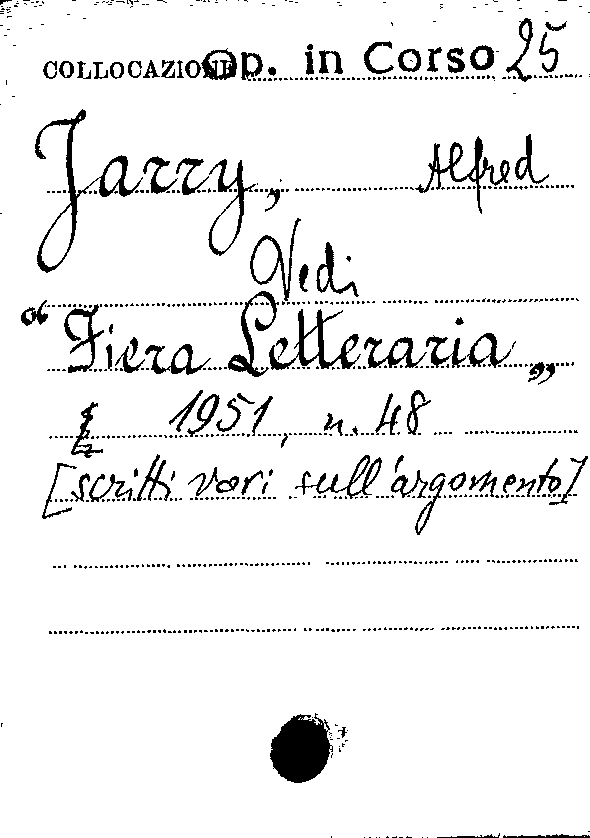 COLLOCAZIONE Op. in Corso 25
Jarry, Alfred
Vedi
“Fiera Letteraria„
1951, n. 48
[scritti vari sull'argomento]